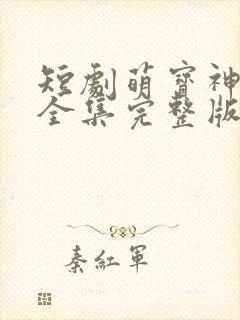 短劇萌寶神
全集完整版
秦紅軍